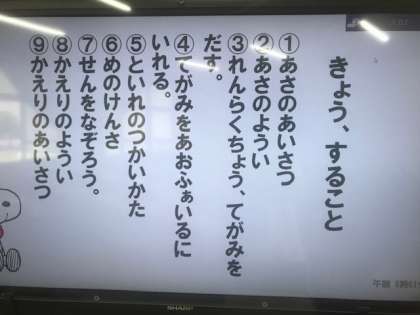 きょう、すること
①あさのあいさつ
②あさのようい
③れんらくちょう、てがみを
だす。
④てがみをあおふぁいるに
いれる。
⑤といれのつかいかた
⑥めのけんさ
⑦せんをなぞろう。
⑧かえりのようい
⑨かえりのあいさつ
午前
SHARP